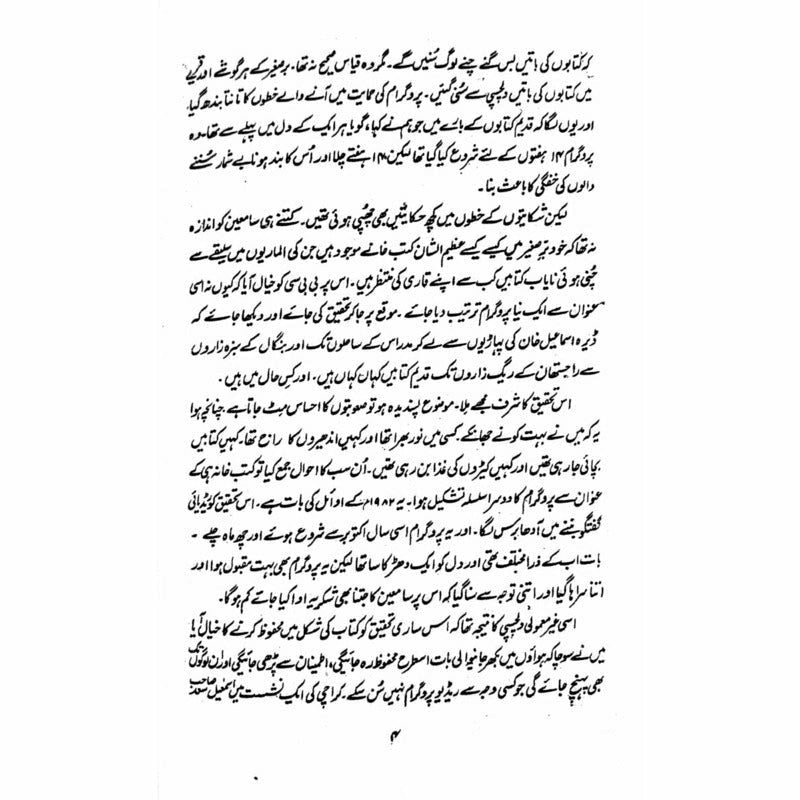 کہ کتابوں کی باتیں بس گنے چنے لوگ سُنیں گے۔ مگر وہ قیاس صحیح نہ تھا۔ برِصغیر کے ہر گوشے اور قریے
میں کتابوں کی باتیں دلچسپی سے سُنی گئیں۔ پروگرام کی حمایت میں آنے والے خطوں کا تانتا بندھ گیا
اور یوں لگا کہ قدیم کتابوں کے بارے میں جو ہم نے کہا، گویا ہر ایک کے دل میں پہلے سے تھا۔ وہ
پروگرام ۱۴ ہفتوں کے لئے شروع کیا گیا تھا لیکن ۱۴ ہفتے چلا اور اُس کا بند ہونا بے شمار سُننے
والوں کی خفگی کا باعث بنا۔
لیکن شکایتوں کے خطوں میں کچھ حکایتیں بھی چھپی ہوئی تھیں۔ کتنے ہی سامعین کو اندازہ
نہ تھا کہ خود برِصغیر میں کیسے کیسے عظیم الشان کتب خانے موجود ہیں جن کی الماریوں میں سلیقے سے
چُنی ہوئی نایاب کتابیں کب سے اپنے قاری کی منتظر ہیں۔ اس پر بی بی سی کو خیال آیا کہ کیوں نہ اسی
عنوان سے ایک نیا پروگرام ترتیب دیا جائے۔ موقع پر جا کر تحقیق کی جائے اور دیکھا جائے کہ
ڈیرہ اسماعیل خان کی پہاڑیوں سے لے کر مدراس کے ساحلوں تک اور بنگال کے سبزہ زاروں
سے راجستھان کے ریگ زاروں تک قدیم کتابیں کہاں کہاں ہیں۔ اور کس حال میں ہیں۔
اس تحقیق کا شرف مجھے ملا۔ موضوع پسندیدہ ہو تو صعوبتوں کا احساس مٹ جاتا ہے چنانچہ ہوا
یہ کہ میں نے بہت کونے جھانکے۔ کسی میں نور بھرا تھا اور کہیں اندھیروں کا راج تھا۔ کہیں کتابیں
بچائی جا رہی تھیں اور کہیں کیڑوں کی غذا بن رہی تھیں۔ اُن سب کا احوال جمع کیا تو کتب خانہ ہی کے
عنوان سے پروگرام کا دوسرا سلسلہ تشکیل ہوا۔ یہ ۱۹۸۲ء کے اوائل کی بات ہے۔ اس تحقیق کو ریڈیائی
گفتگو بننے میں آدھا برس لگا۔ اور یہ پروگرام اسی سال اکتوبر سے شروع ہوئے اور چھ ماہ چلے۔
بات اب کے ذرا مختلف تھی اور دل کو ایک دھڑکا سا تھا لیکن یہ پروگرام بھی بہت مقبول ہوا اور
اتنا سراہا گیا اور اتنی توجہ سے سنا گیا کہ اس پر سامعین کا جتنا بھی شکریہ ادا کیا جائے کم ہوگا۔
اسی غیر معمولی دلچسپی کا نتیجہ تھا کہ اُس ساری تحقیق کو کتاب کی شکل میں محفوظ کرنے کا خیال آیا
میں نے سوچا کہ ہواؤں میں بکھر جانیوالی بات اسطرح محفوظ رہ جائیگی، اطمینان سے پڑھی جائیگی اور اُن لوگوں تک
بھی پہنچ جائے گی جو کسی وجہ سے ریڈیو پروگرام نہیں سُن سکے۔ کراچی کی ایک نشست میں اسمٰعیل صاحب
۴